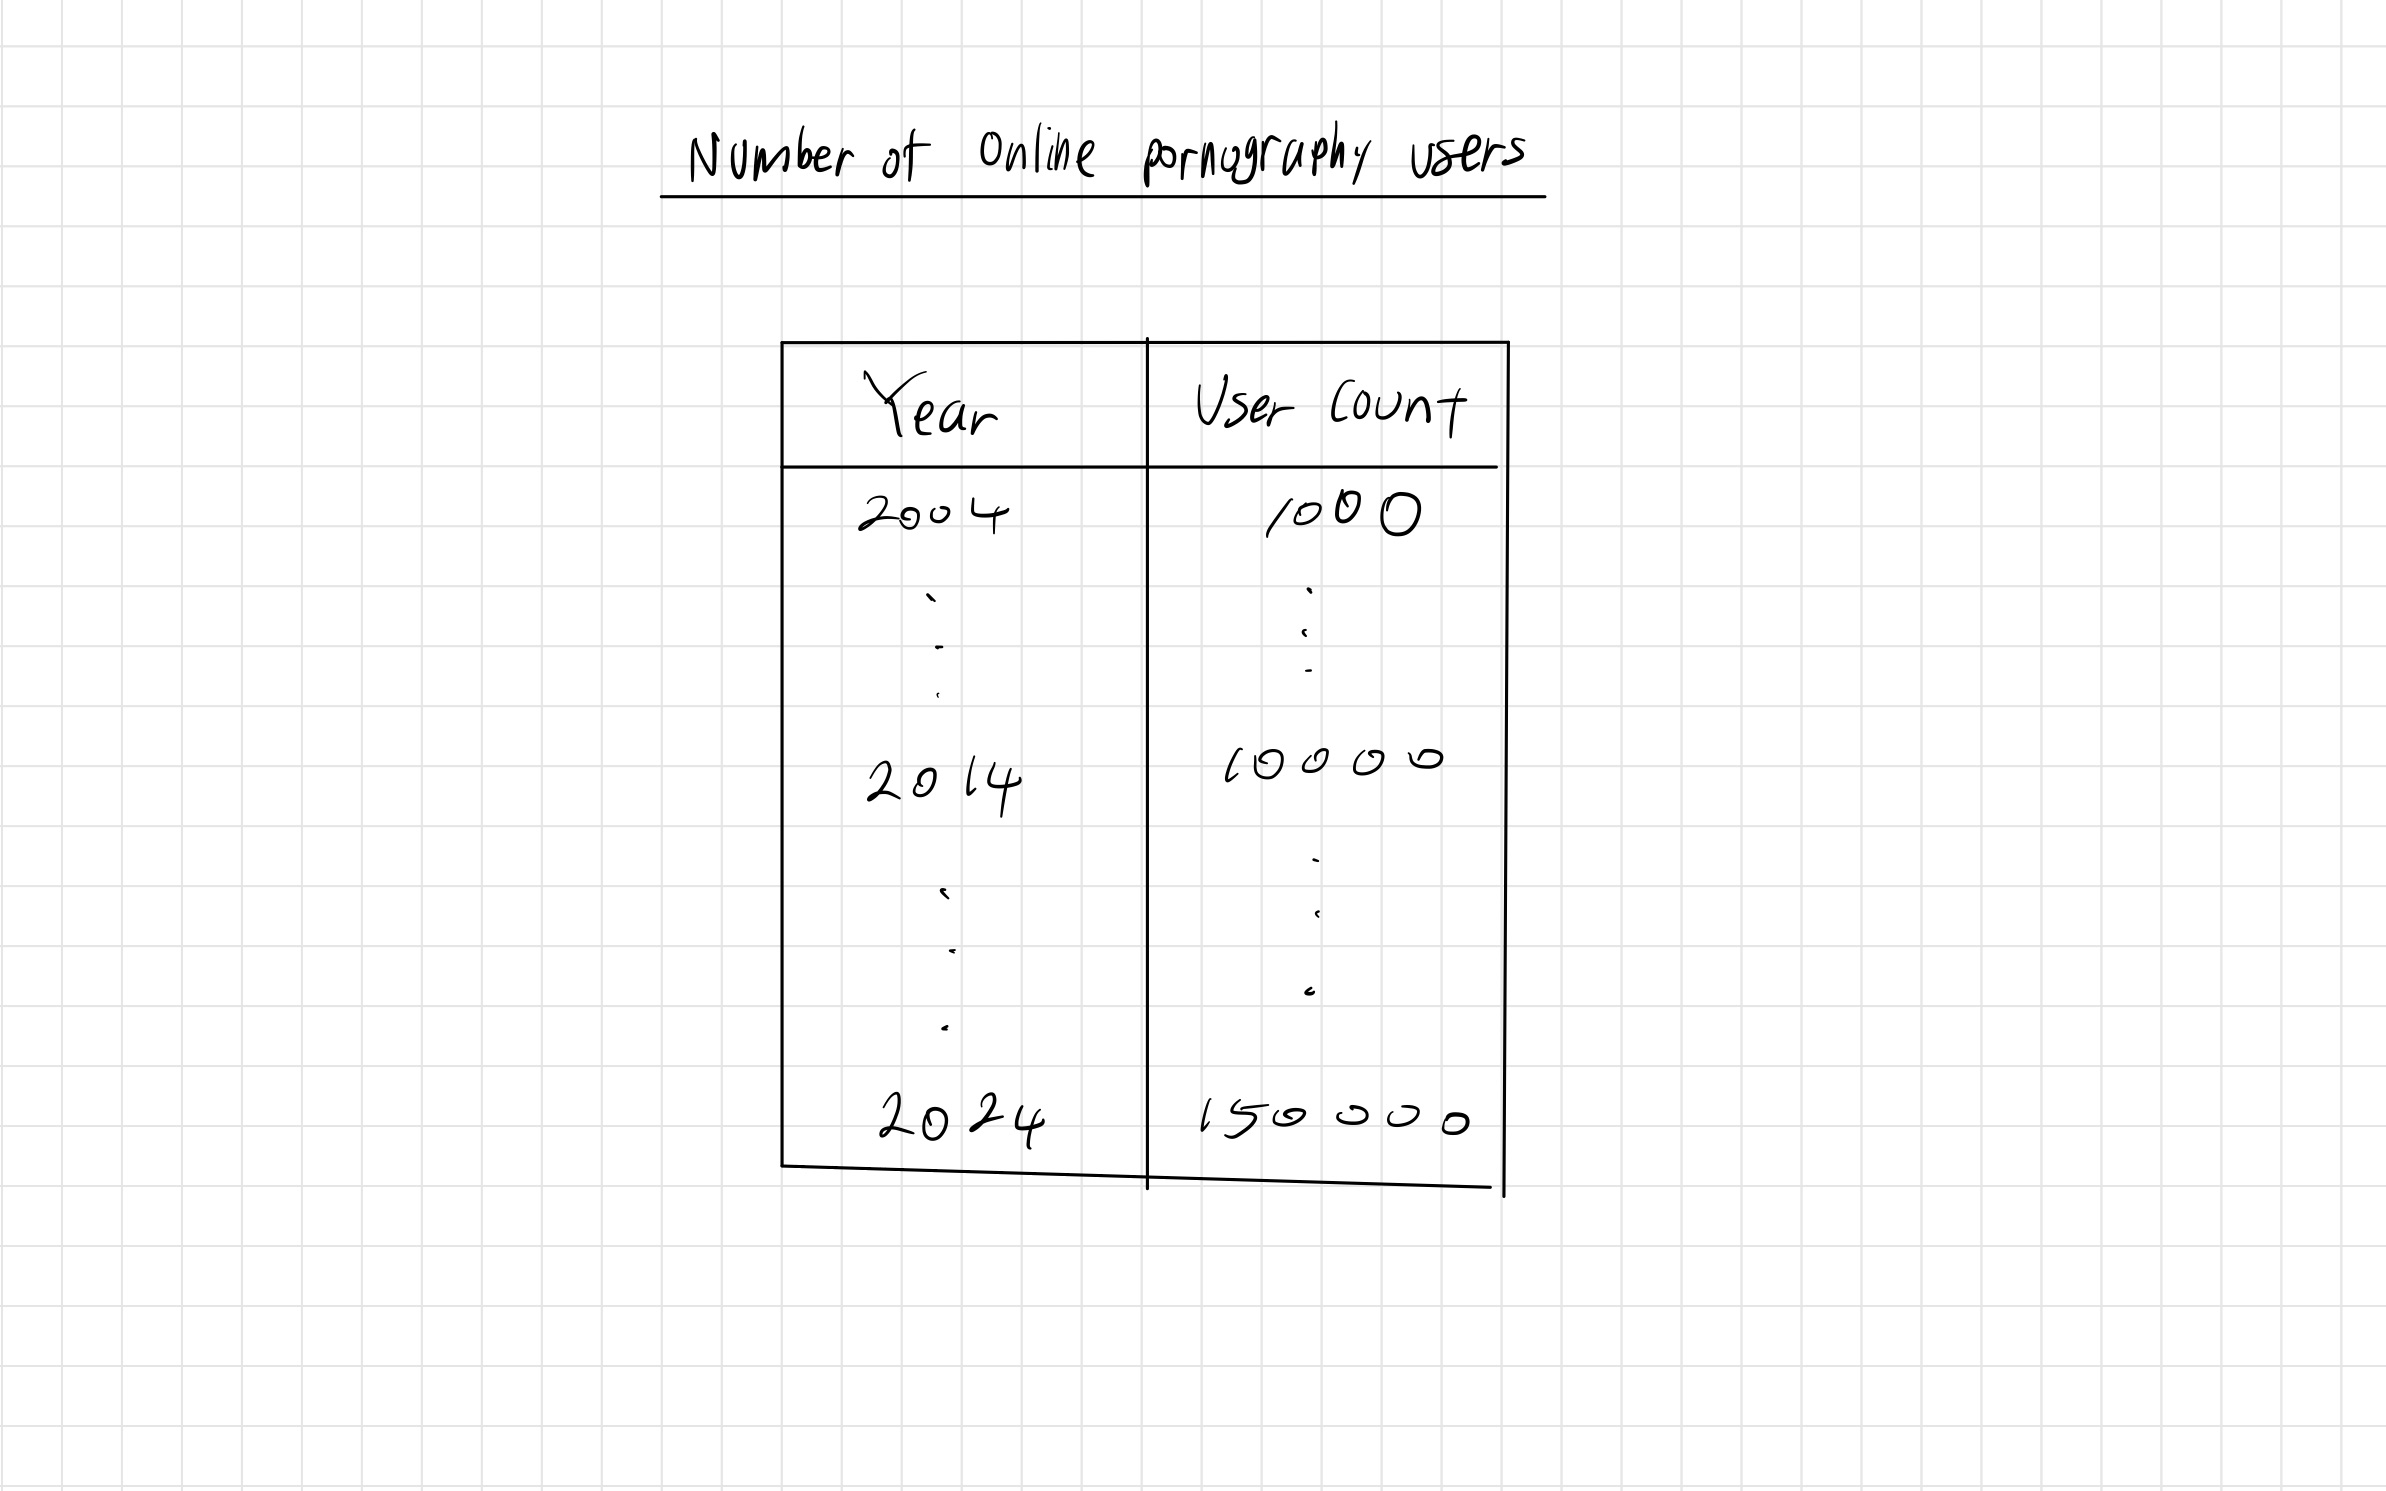 Number of Online pornography users
Year User Count
2004 1000
.
.
.
2014 10000
.
.
.
2024 150000